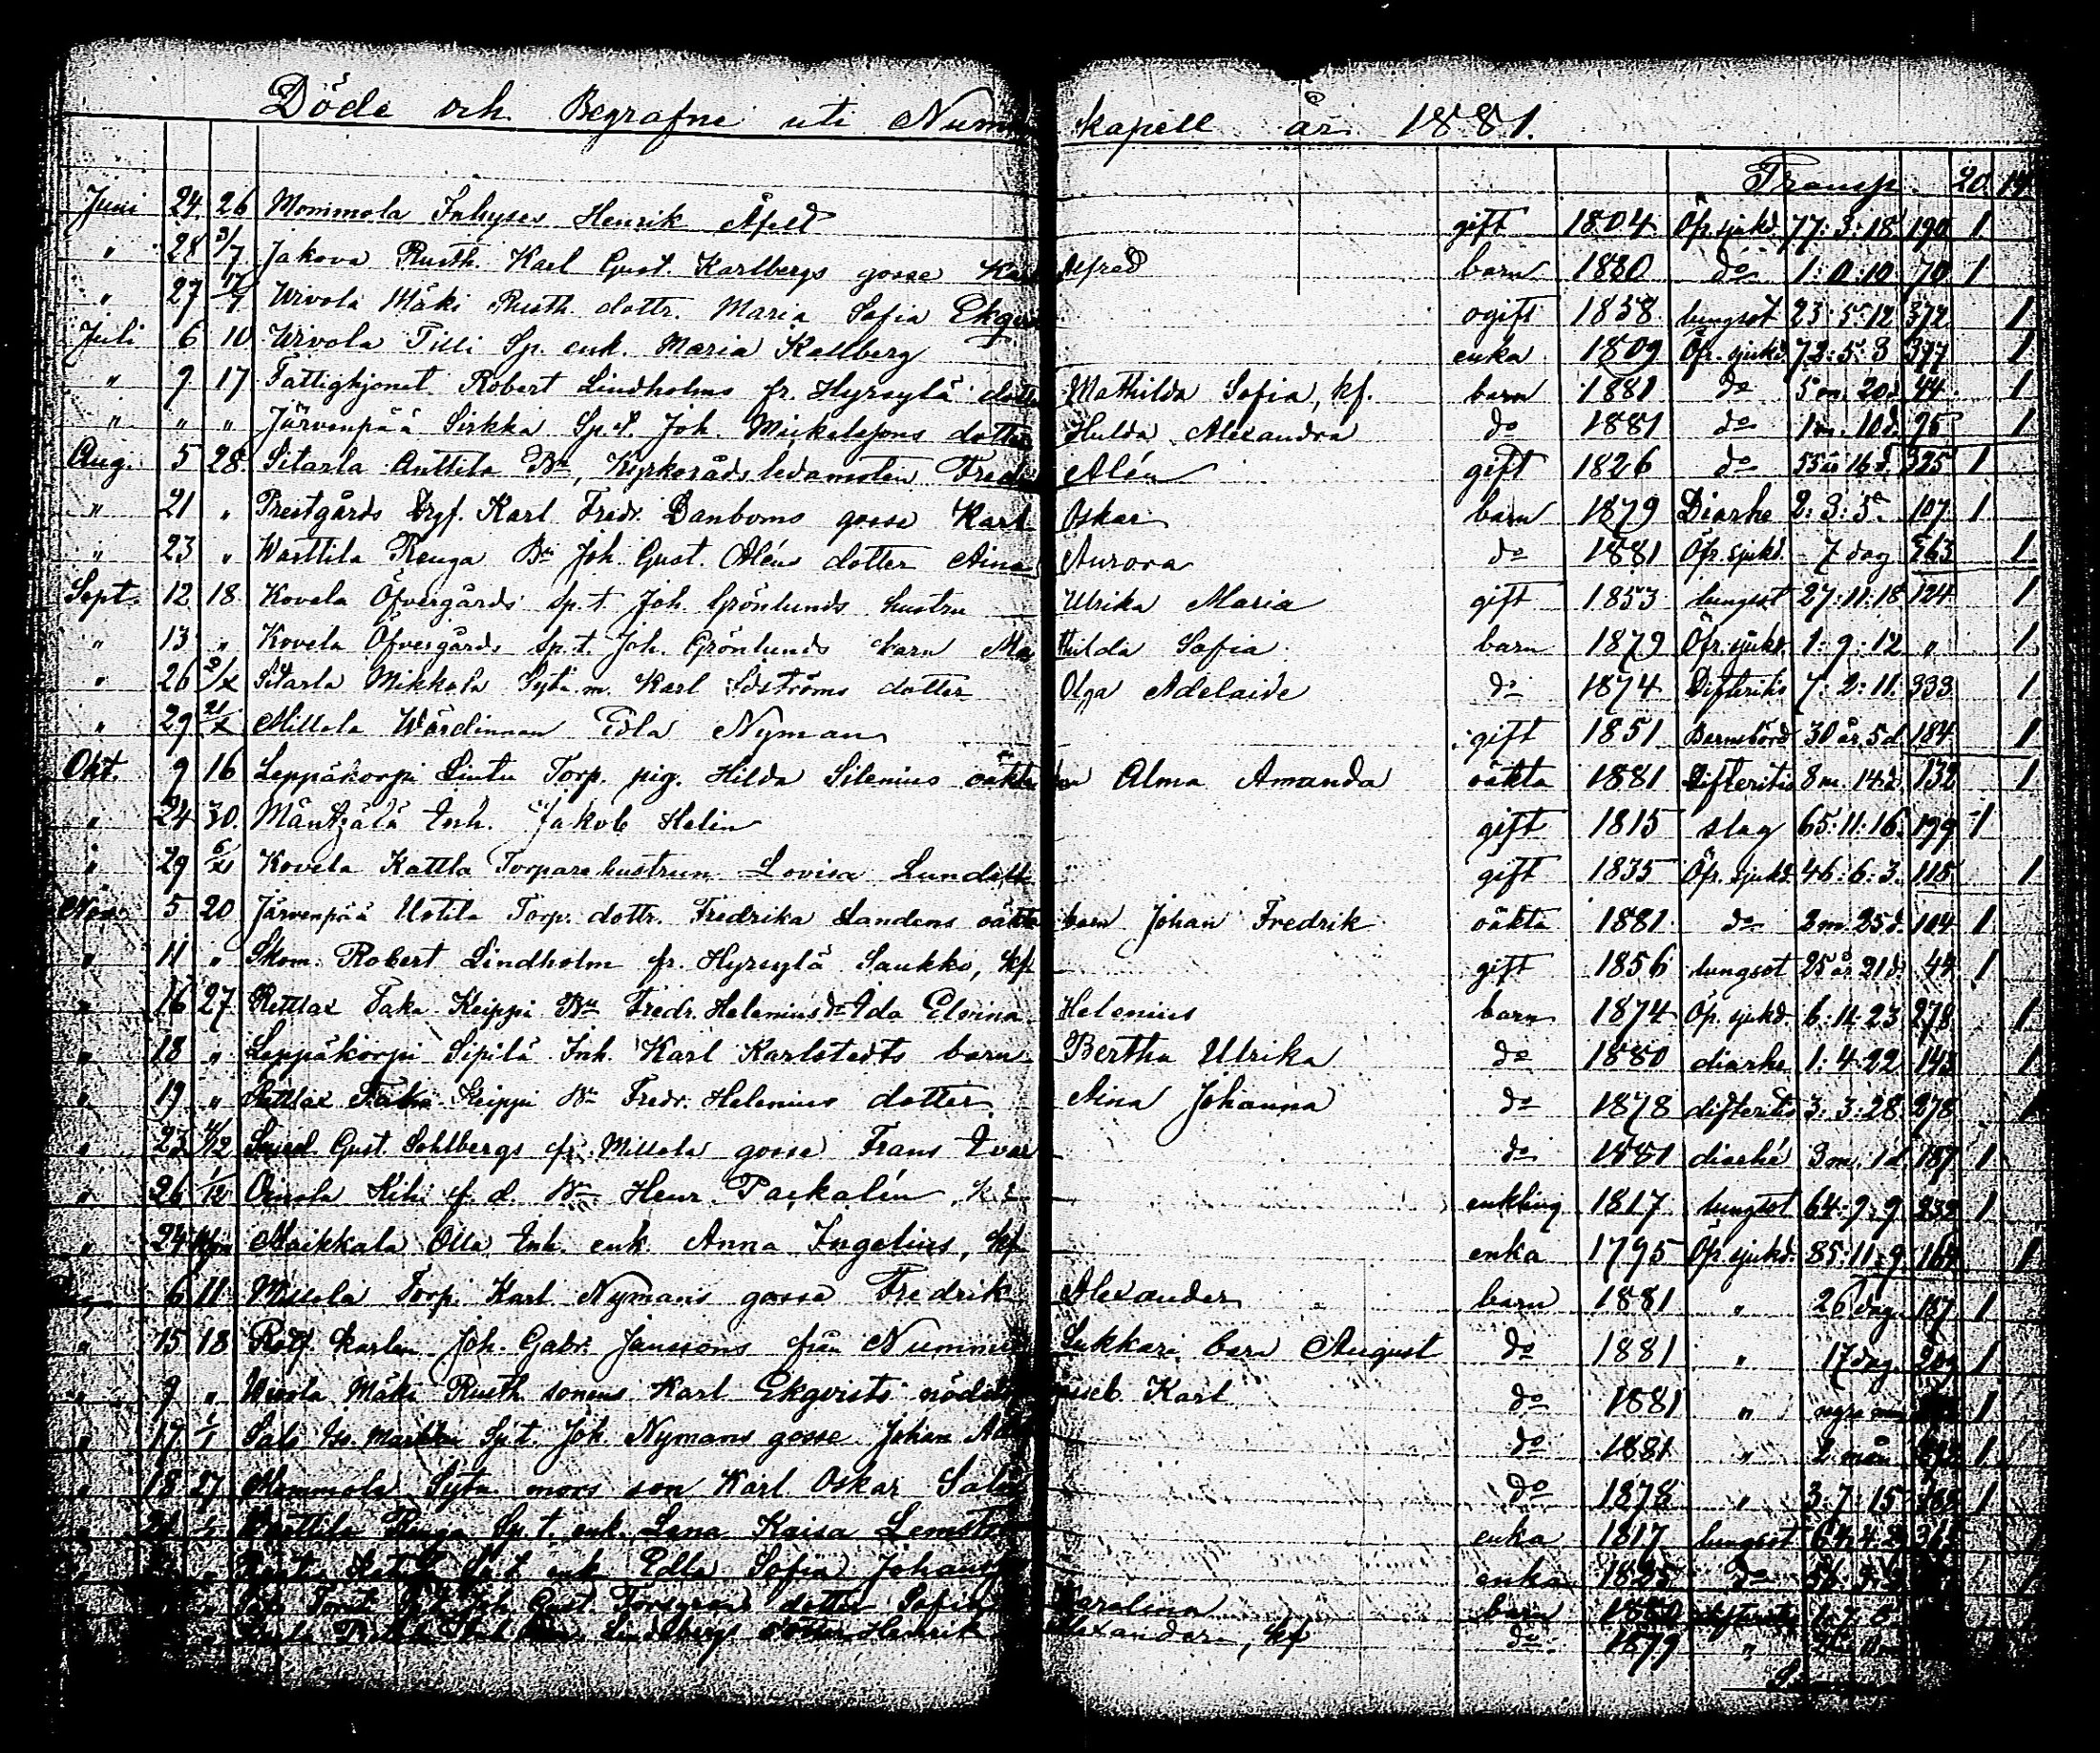 Döde och Begrafne uti Numm kapell år 1881.
Transp. 20 14
Juni 24 26 Mommola Inhyses Henrik Åfelt gift 1804 Öfr. sjukd. 77: 3: 18 190 1
" 28 3/7 Jakova Rusth. Karl Gust. Karlbergs gosse Karl Alfred barn 1880 do 1: 0: 10 70 1
" 27 17/7 Urvola Mäki Rusth. dottr. Maria Sofia Ekqvi ogift 1858 lungsot 23: 5: 12 372 1
Juli 6 10 Urvola Tilli Sp. enk. Maria Kallberg enka 1809 Öfr. sjukd. 72: 5: 3 377 1
" 9 17 Fattighjonet Robert Lindholms fr. Hyrsylä dotter Mathilda Sofia, kf. barn 1881 do 5 m. 20 d. 44 1
" " " Järvenpää Sirkka Sp. t. Joh. Mickelssons dotter Hulda Alexandra do 1881 do 1 m. 10 d. 95 1
Aug. 5 28 Sitarla Anttila Bn, Kyrkorådsledamoten Fredr Alén gift 1826 do 55 år 16 d. 325 1
" 21 " Prestgårds Trpf. Karl Fredr. Danboms gosse Karl Oskar barn 1879 Diarhe 2: 3: 5 107 1
" 23 " Warttila Renga Bn Joh. Gust. Aléns dotter Aina Aurora do 1881 Öfr. sjukd. 7 dag 363 1
Sept. 12 18 Kovela Öfvergårds Sp. t. Joh. Grönlunds hustru Ulrika Maria gift 1853 lungsot 27: 11: 18 124 1
" 13 " Kovela Öfvergårds Sp. t. Joh. Grönlunds barn Ma thilda Sofia barn 1879 Öfr. sjukd. 1: 9: 12 " 1
" 26 2/X Sitarla Mikkola Sytn. m. Karl Idströms dotter Olga Adelaide do 1874 Difteritis 7: 2: 11 333 1
" 29 21/X Millola Wärdinnan Edla Nyman gift 1851 Barnsbörd 30 år, 5 d. 184 1
Okt. 9 16 Leppäkorpi Lintu Torp. pig. Hilda Silenius oäkta barn Alma Amanda oäkta 1881 Difteritis 8 m. 14 d. 132 1
" 24 30 Mäntsälä Inh. Jakob Helin gift 1815 slag 65: 11: 16 179 1
" 29 6/XI Kovela Kattla Torparehustrun Lovisa Lundstt gift 1835 Öfr. sjukd. 46: 6: 3 115 1
Nov. 5 20 Järvenpää Uotila Torp. dottr. Fredrika Landens oäkta barn Johan Fredrik oäkta 1881 do 2 m. 25 d. 104 1
" 11 " Skom. Robert Lindholm fr. Hyrsylä Saukko, kf. gift 1856 lungsot 25 år 21 d. 44 1
" 16 27 Rettlax Taka Keippi Bn Fredr. Helenius dr Ida Elvina Helenius barn 1874 Öfr. sjukd. 6: 11: 23 278 1
" 18 " Leppäkorpi Sipilä Inh. Karl Karlstedts barn Bertha Ulrika do 1880 diarhe 1: 4: 22 143 1
" 19 " Rettlax Taka Keippi Bn Fredr. Helenius dotter Aina Johanna do 1878 difteritis 3: 3: 28 278 1
" 23 4/12 Gust. Sohlbergs fr. Millola gosse Frans Ivar do 1881 diarhé 3 m. 1 d. 187 1
" 26 1/12 Oinola Kihi f. d. Bn Henr. Packalén, enkling 1817 lungsot 64: 9: 9 232 1
" 24 Maikkala Olla Inh. enk. Anna Ingelius, kf. enka 1795 Öfr. sjukd. 85: 11: 9 164 1
" 6 11 Millola Torp. Karl Nymans gosse Fredrik Alexander barn 1881 " 26 dag. 187 1
" 15 18 Rotf. karlen Joh. Gabr. Janssons från Nummis Sukkari barn August do 1881 " 17 dag. 209 1
" 9 " Urvola Mäki Rusth. sonens Karl Ekqvists nöddöpt gosseb. Karl do 1881 " 1
" 17 1/1 Salo Iso Markku Sp. t. Joh. Nymans gosse Johan do 1881 " 2 mån 1
" 18 27 Mommola Sytn. mors son Karl Oskar do 1878 " 3: 7: 15 1
Warttila Renga Sp. t. enk. Lena Kaisa enka 1817 lungsot
Sp. t. enk. Edla Sofia enka 1825 do
Joh. Gust. dotter Sofia Karolina barn 1880 difteritis
Lindbergs dotter Henrik Alexander, kf. do 1879 "